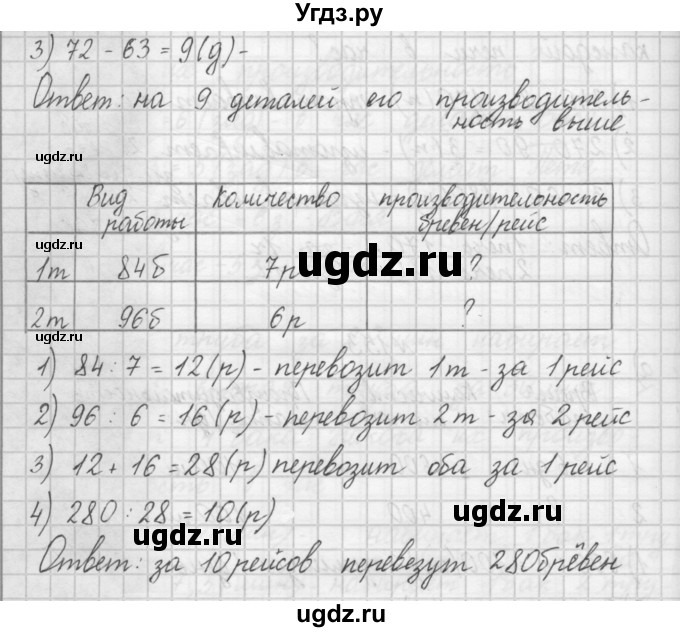 Угдз.ру
3) 72 - 63 = 9(д) -
Ответ: на 9 деталей его производитель-
ность выше
ugdz.ru ugdz.ru
Вид работы количество производительность бревен/рейс
1т 84б 7р ?
ugdz.ru ugdz.ru ugdz.ru
2т 96б 6р ?
1) 84 : 7 = 12(р) - перевозит 1т - за 1 рейс
2) 96 : 6 = 16(р) - перевозит 2т - за 2 рейс
ugdz.ru
3) 12 + 16 = 28(р) перевозит оба за 1 рейс
4) 280 : 28 = 10(р)
ugdz.ru ugdz.ru
Ответ: за 10 рейсов перевезут 280 брёвен
ugdz.ru ugdz.ru
ugdz.ru